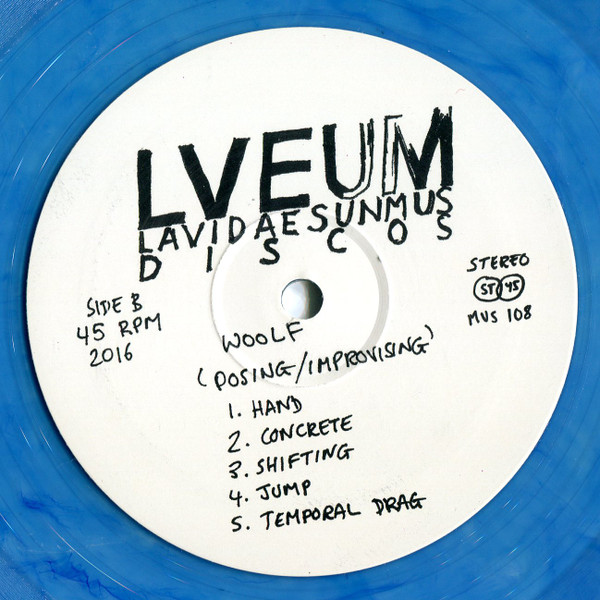 LVEUM
LAVIDAESUNMUS
DISCOS
SIDE B
45 RPM
2016
STEREO
ST 45
MUS 108
WOOLF
(POSING/IMPROVISING)
1. HAND
2. CONCRETE
3. SHIFTING
4. JUMP
5. TEMPORAL DRAG